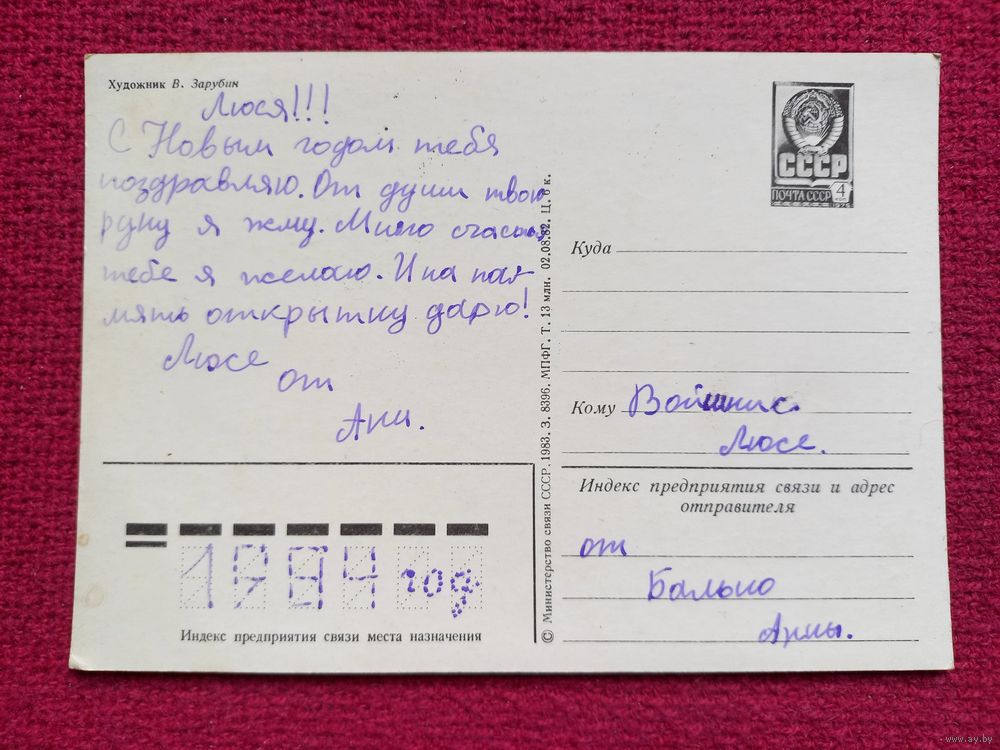 Художник В. Зарубин
Люся!!!
С Новым годом тебя
поздравляю. От души твою
руку я жму. Много счастья
тебе я желаю. И на пa-
мять открытку дарю!
Люсе
от
Ани.
1984 год
Индекс предприятия связи места назначения
© Министерство связи СССР. 1983. З. 8396. МПФГ. Т. 13 млн. 02.08.82. Ц. 6 к.
СССР
ПОЧТА СССР
4
коп
1976
Куда
Кому
Люсе.
Индекс предприятия связи и адрес
отправителя
от
Бально
Анны.
www.ay.by